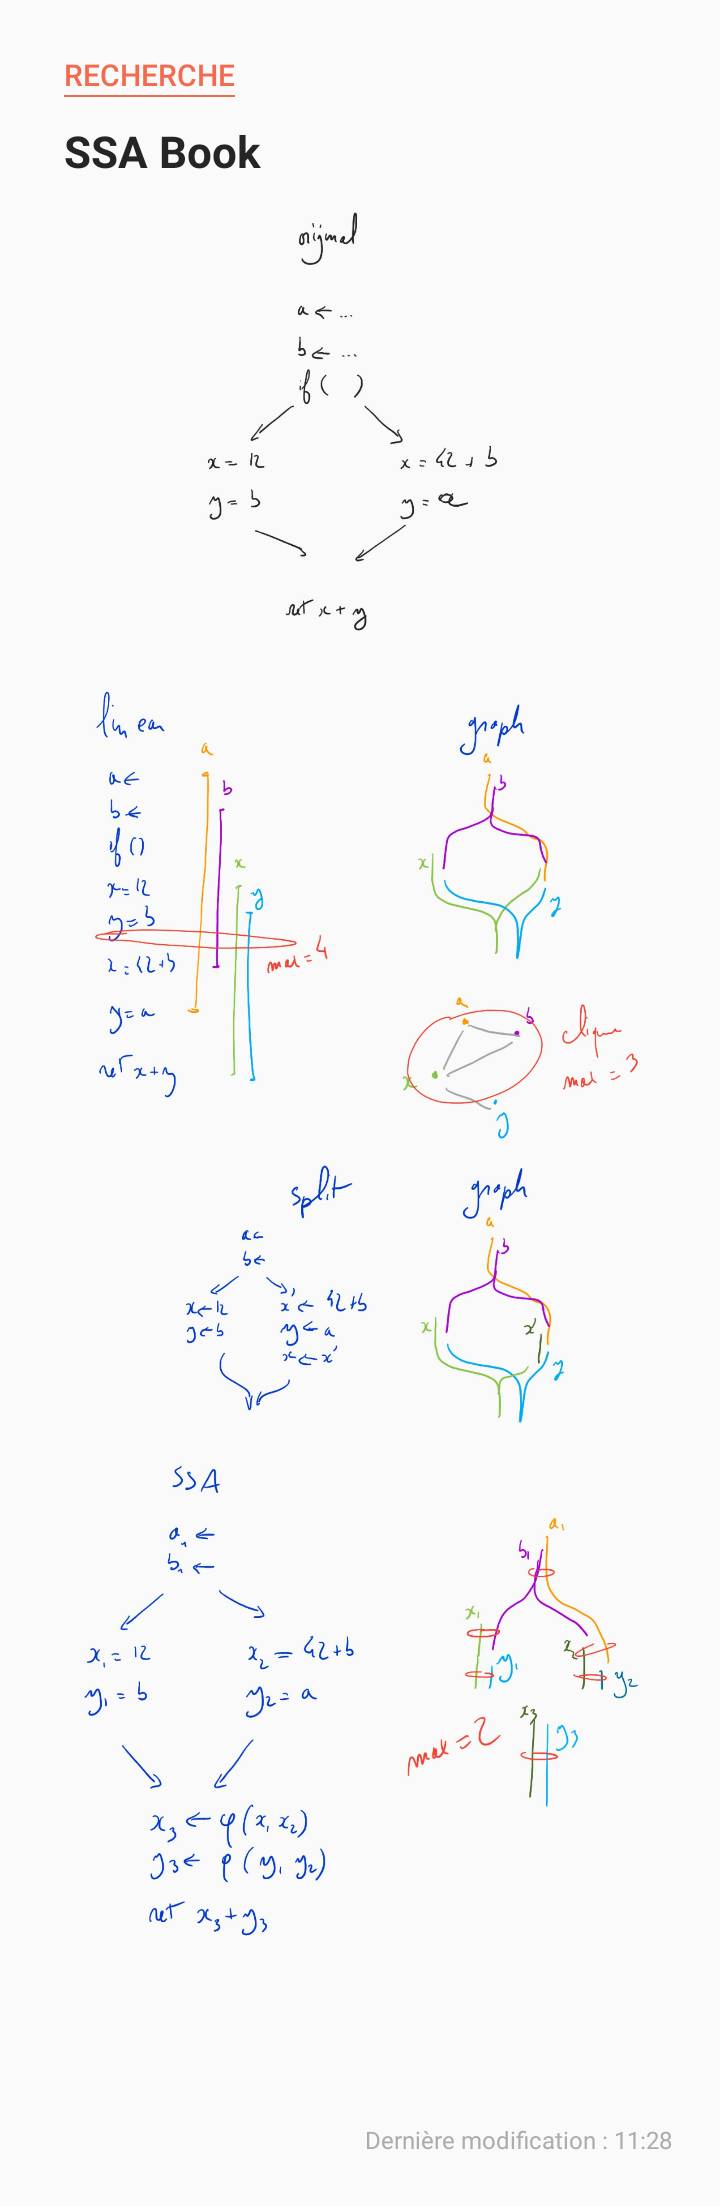 RECHERCHE
SSA Book
original
a ← ...
b ← ...
if ( )
x = 12
x = 42 + b
y = b
y = a
ret x + y
linear
a
b
x
y
a ←
b ←
if ()
x = 12
y = b
x = 42 + b
y = a
ret x + y
max = 4
graph
a
b
x
y
a
b
x
y
clique
max = 3
split
a ←
b ←
x ← 12
x' ← 42 + b
y ← b
y ← a
x ← x'
graph
a
b
x
x'
y
SSA
a₁ ←
b₁ ←
x₁ = 12
x₂ = 42 + b
y₁ = b
y₂ = a
x₃ ← φ (x₁ x₂)
y₃ ← φ (y₁ y₂)
ret x₃ + y₃
a₁
b₁
x₁
y₁
x₂
y₂
x₃
y₃
max = 2
Dernière modification : 11:28